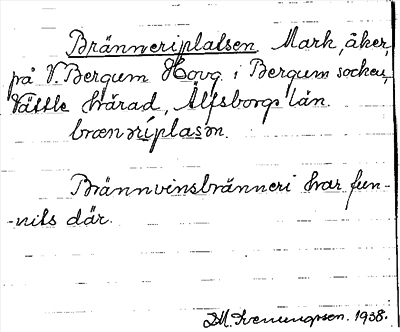 Bränneriplatsen Mark, åker,
på V. Bergum Hovg. i Bergum socken,
Vättle härad, Älfsborgs län.
brænəríplasən.
Brännvinsbränneri har fun-
-nits där.
1938.